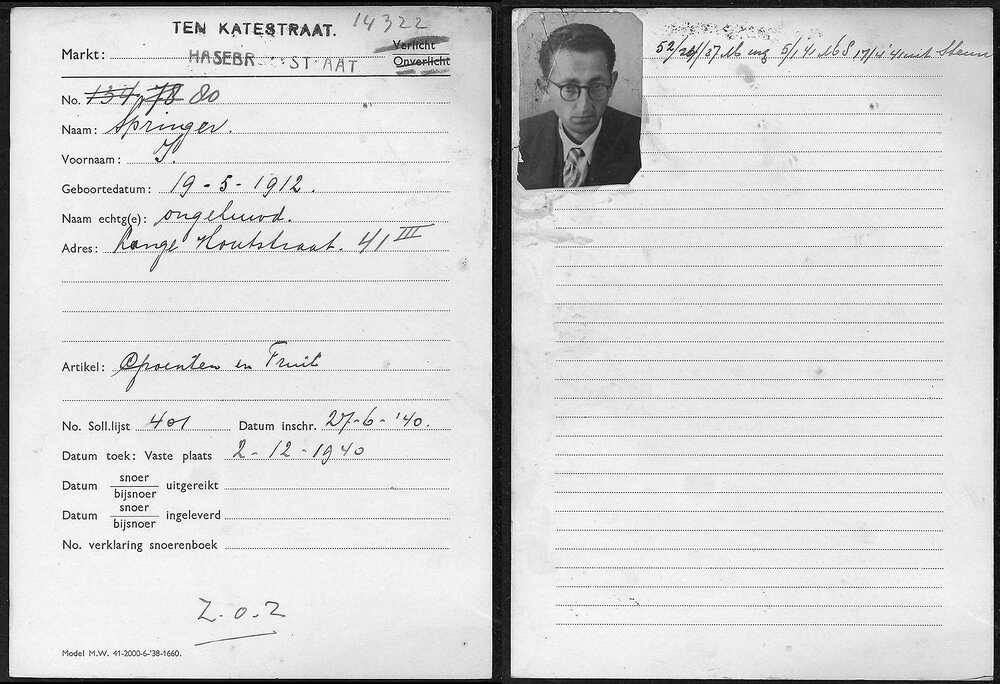 TEN KATESTRAAT. 14322
Verlicht
Markt: HASEBR STRAAT Onverlicht
No. 134, 78 80
Naam: Springer.
Voornaam: I.
Geboortedatum: 19-5-1912.
Naam echtg(e): ongehuwd.
Adres: Lange Houtstraat. 41 III
Artikel: Groenten en Fruit
No. Soll.lijst 401 Datum inschr. 27-6-'40.
Datum toek: Vaste plaats 2-12-1940
Datum snoer/bijsnoer uitgereikt
Datum snoer/bijsnoer ingeleverd
No. verklaring snoerenboek
Z.o.Z
Model M.W. 41-2000-6-'38-1660.